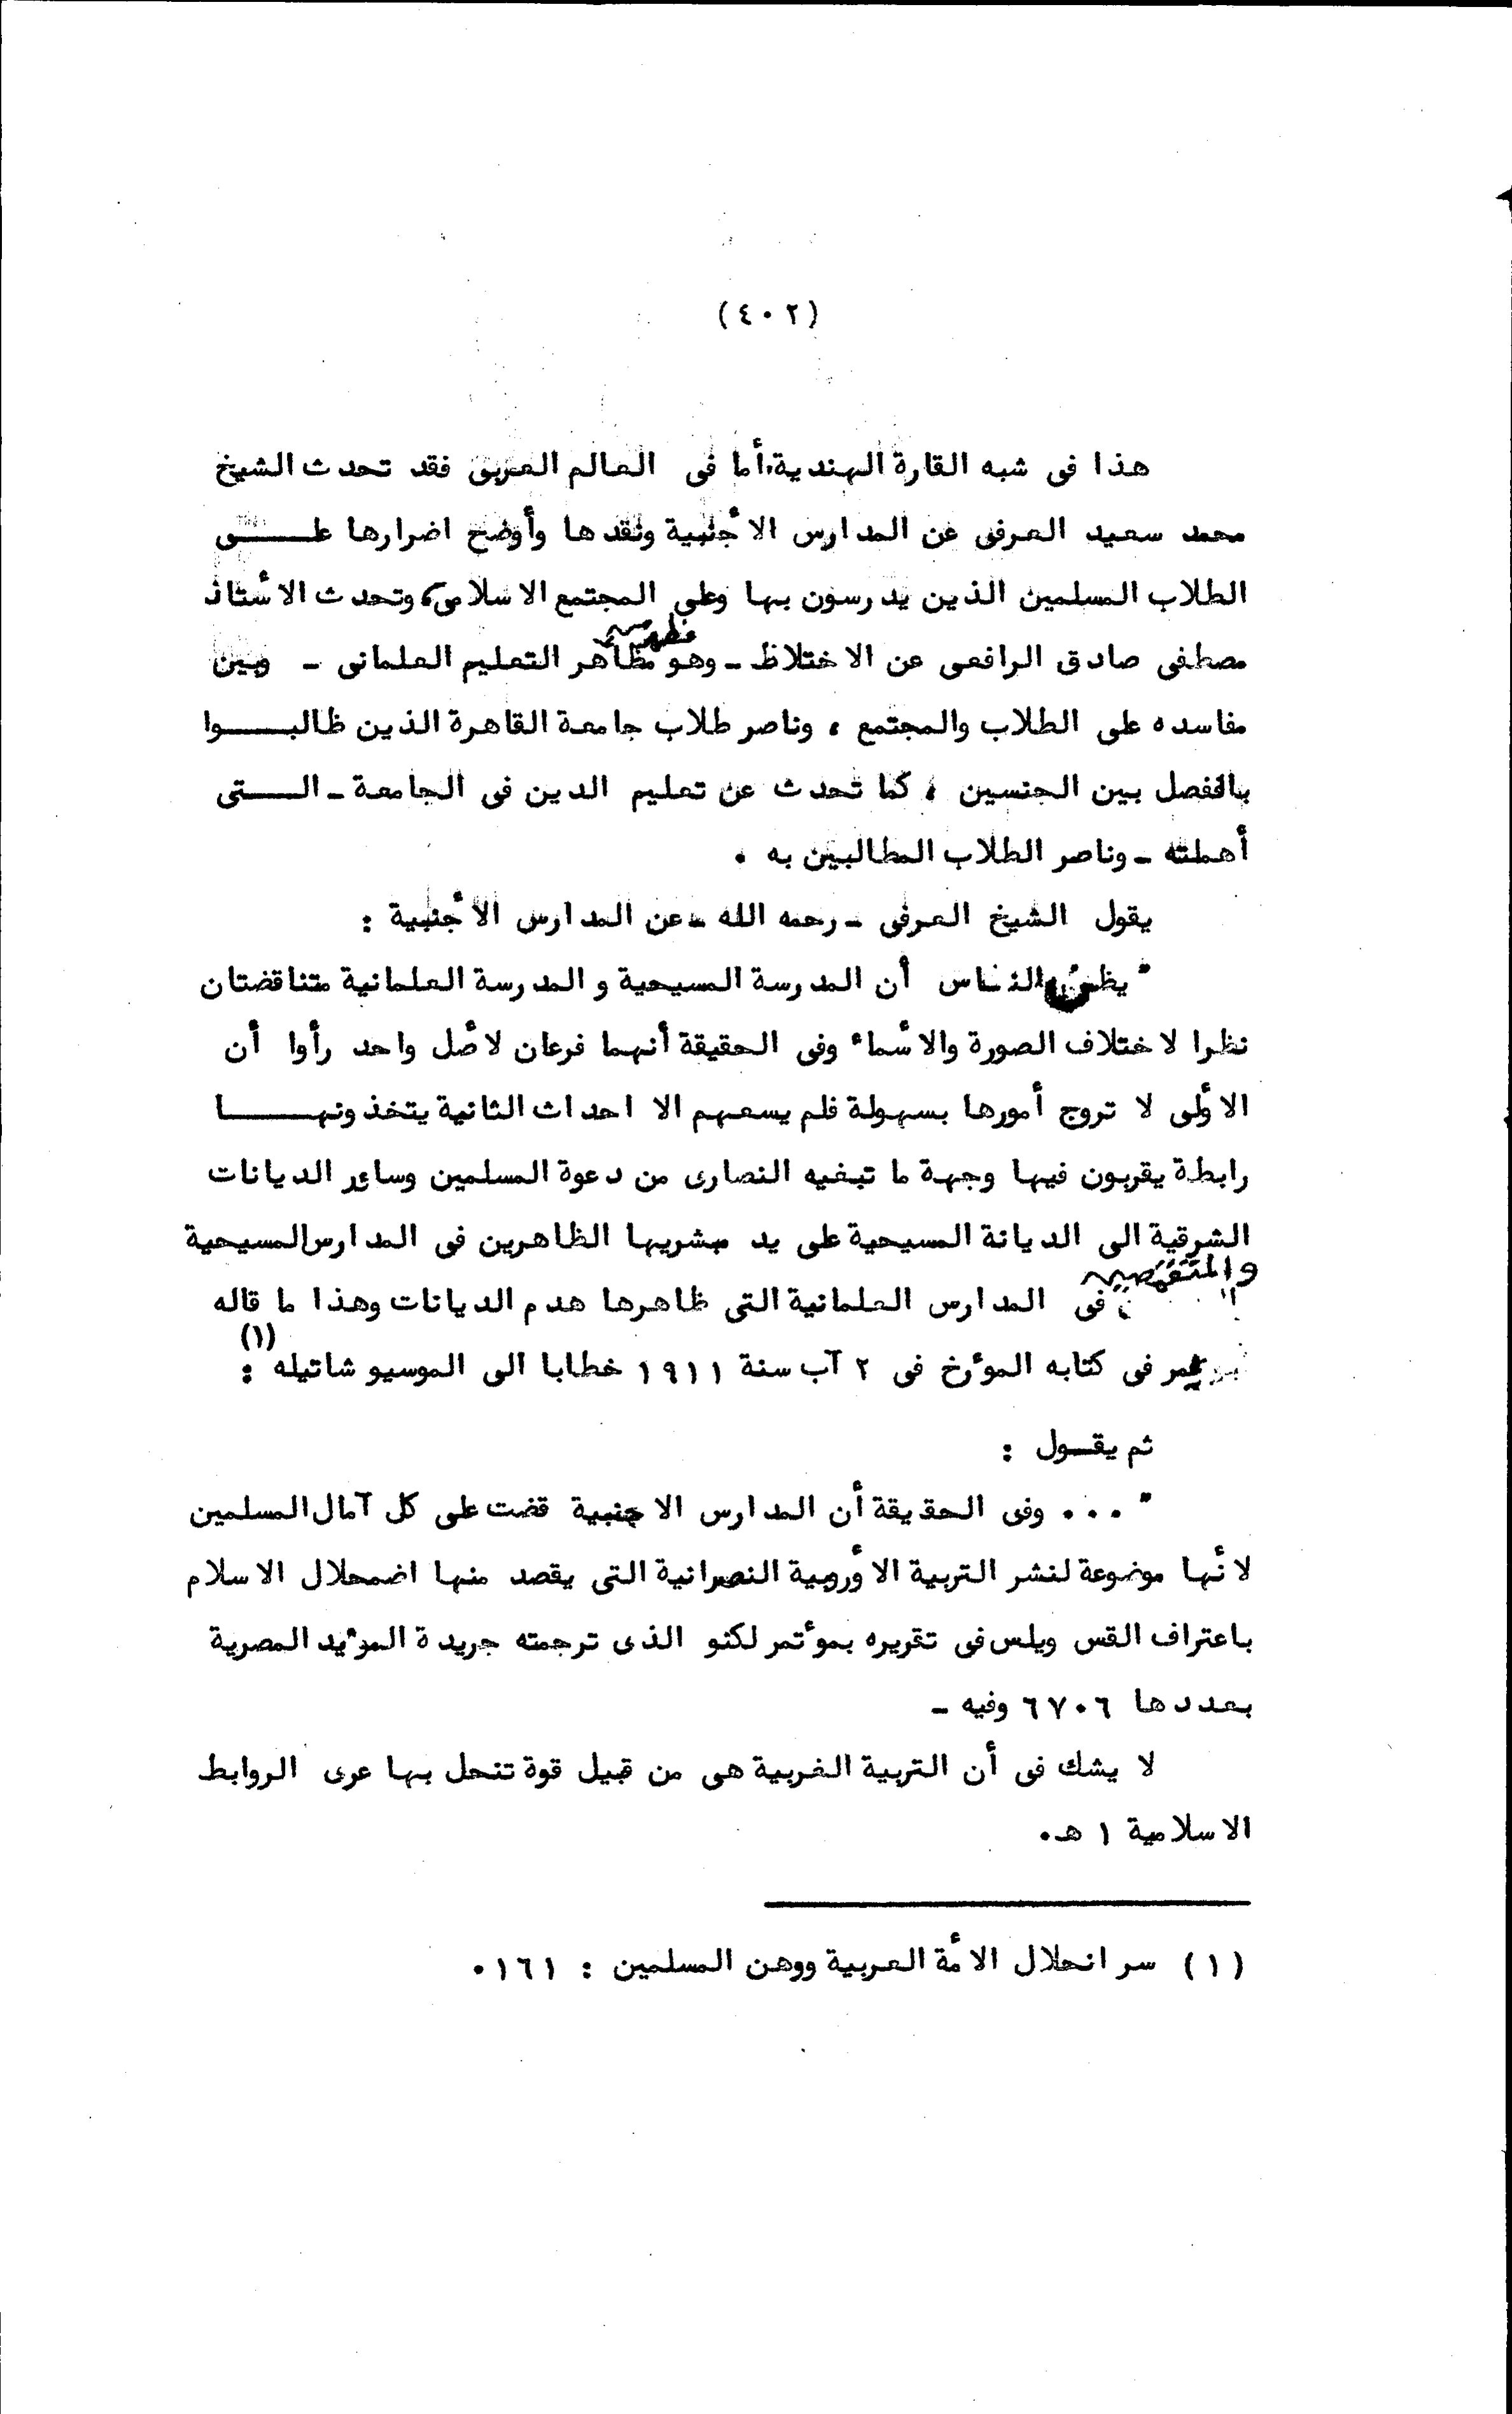 (٤٠٢)
هذا فى شبه القارة الهندية، أما فى العالم العربى فقد تحدث الشيخ
محمد سعيد العرفى عن المدارس الأجنبية ونقدها وأوضح اضرارها علـــــى
الطلاب المسلمين الذين يدرسون بها وعلى المجتمع الاسلامى، وتحدث الأستاذ
مصطفى صادق الرافعى عن الاختلاط - وهو مظهر من مظاهر التعليم العلمانى - وبين
مفاسده على الطلاب والمجتمع ، وناصر طلاب جامعة القاهرة الذين طالبـــــوا
بالفصل بين الجنسين ، كما تحدث عن تعليم الدين فى الجامعة - الـــــتى
أهملته - وناصر الطلاب المطالبين به .
يقول الشيخ العرفى - رحمه الله - عن المدارس الأجنبية :
" يظن الناس أن المدرسة المسيحية و المدرسة العلمانية متناقضتان
نظرا لاختلاف الصورة والأسماء وفى الحقيقة أنهما فرعان لأصل واحد رأوا أن
الأولى لا تروج أمورها بسهولة فلم يسعهم الا احداث الثانية يتخذونهـــــا
رابطة يقربون فيها وجهة ما تبغيه النصارى من دعوة المسلمين وسائر الديانات
الشرقية الى الديانة المسيحية على يد مبشريها الظاهرين فى المدارس المسيحية
والمتقمصين فى المدارس العلمانية التى ظاهرها هدم الديانات وهذا ما قاله
فى كتابه المؤرخ فى ٢ آب سنة ١٩١١ خطابا الى الموسيو شاتيله (١) :
ثم يقـــول :
" ... وفى الحقيقة أن المدارس الاجنبية قضت على كل آمال المسلمين
لأنها موضوعة لنشر التربية الأوروبية النصرانية التى يقصد منها اضمحلال الاسلام
باعتراف القس ويلس فى تقريره بمؤتمر لكنو الذى ترجمته جريدة المؤيد المصرية
بعددها ٦٧٠٦ وفيه -
لا يشك فى أن التربية الغربية هى من قبيل قوة تنحل بها عرى الروابط
الاسلامية ١ هـ.
(١) سر انحلال الأمة العربية ووهن المسلمين : ١٦١.